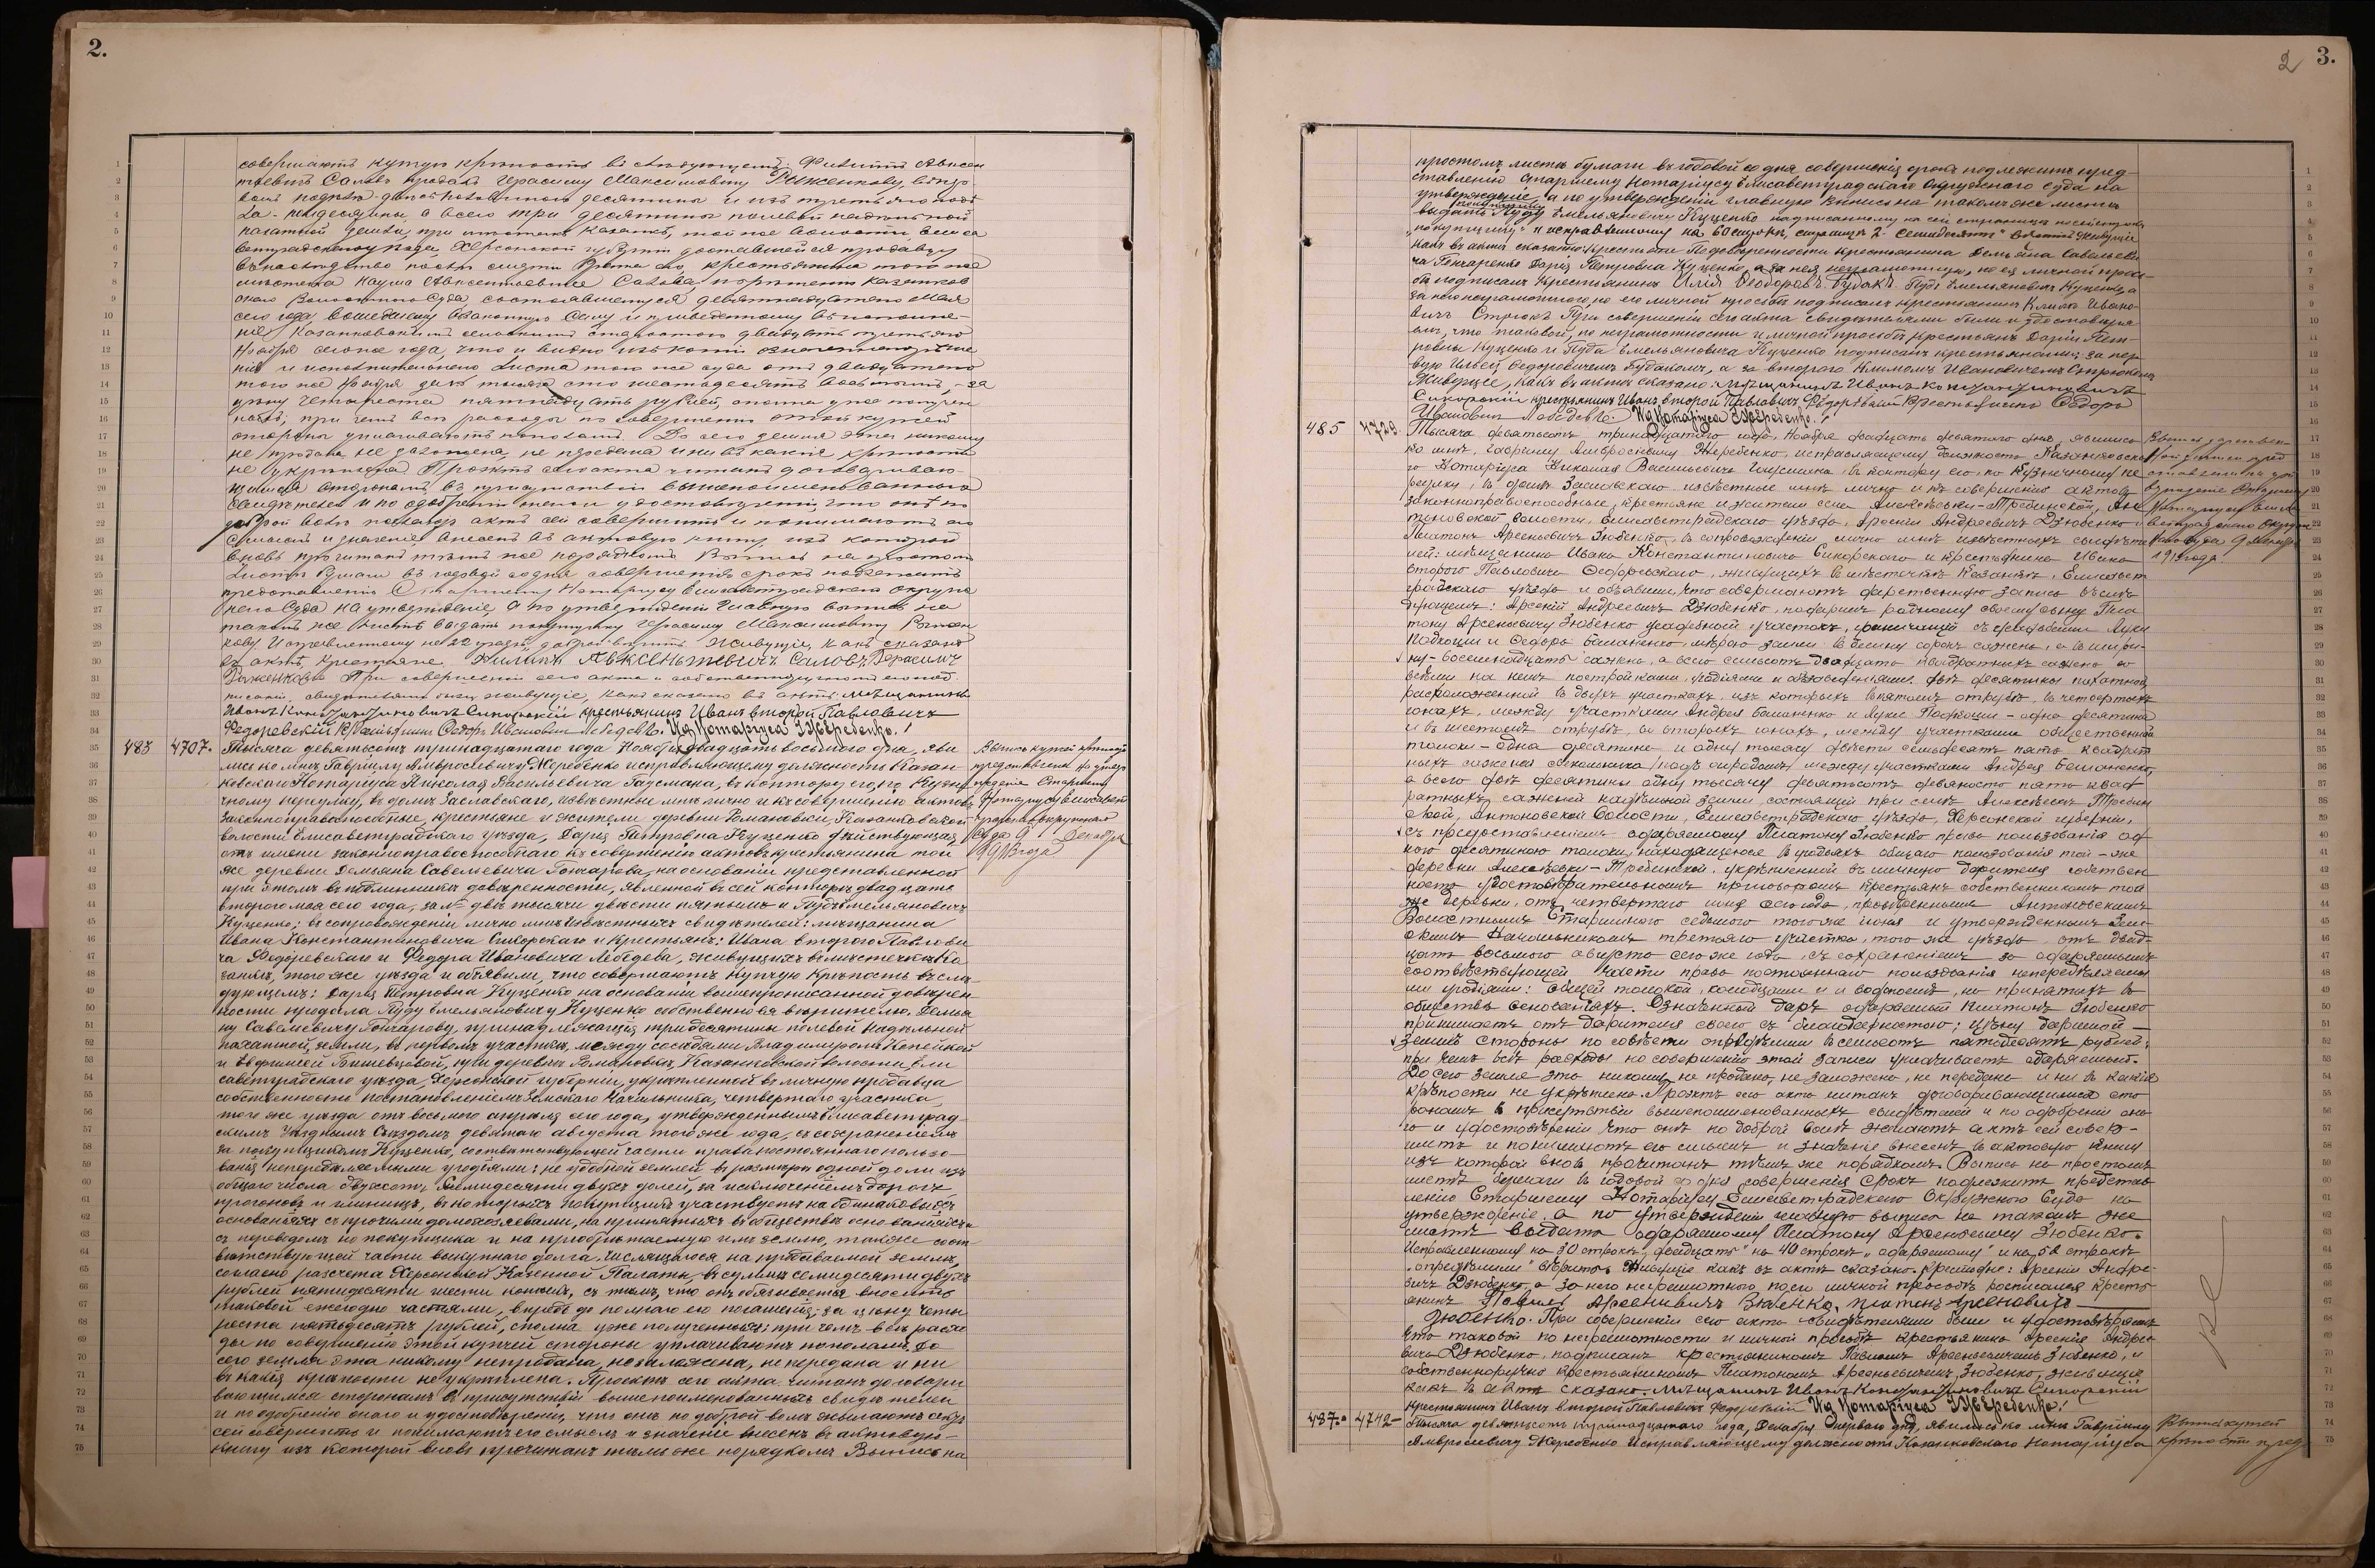 2.
совершаютъ купчую крѣпость въ слѣдующемъ: Филиппъ Авксен
тьевичъ Саловъ продалъ Герасиму Максимовичу Рыженкову
а всего три десятины полевой надѣльной
пахатной земли, при мѣстечкѣ Казанкѣ, той же волости Елиса
ветградскаго уѣзда, Херсонской губерніи доставшейся продавцу
въ наслѣдство послѣ смерти брата его, крестьянина того же
мѣстечка Наума Авксентьевича Салова, по рѣшенію Казанков
скаго Волостного Суда, состоявшемуся девятнадцатаго Мая
сего года вошедшему въ законную силу и приведенному въ исполне-
ніе Казанковскимъ сельскимъ старостою двадцать третьяго
Ноября сего же года, что и видно изъ копіи означеннаго рѣше
нія и исполнительнаго листа того же суда отъ двадцатаго
того же Ноября за № тысяча сто шестьдесятъ восьмымъ, - за
цѣну четыреста пятнадцать рублей, сполна уже получен
ныхъ, при чемъ всѣ расходы по совершенію этой купчей
стороны уплачиваютъ пополамъ. До сего земля эта никому
не продана, не заложена, не передана и ни въ какія крѣпости
не укрѣплена. Проектъ сего акта читанъ договариваю-
щимся сторонамъ въ присутствіи вышепоименованныхъ
свидѣтелей и по одобреніи оного и удостовѣреніи, что онѣ по
доброй волѣ желаютъ актъ сей совершить и понимаютъ его
смыслъ и значеніе внесенъ въ актовую книгу изъ которой
вновь прочитанъ тѣмъ же порядкомъ Выпись на простомъ
листѣ бумаги въ годовой со дня совершенія срокъ подлежитъ
представленію Старшему Нотаріусу Елисаветградскаго Окруж
наго Суда на утвержденіе, а по утвержденіи главную выпись на
такомъ же листѣ выдать покупщику Герасиму Максимовичу Рыжен
кову Исправленному на 22 строкѣ „доброй" вѣрить Живущіе, какъ сказано
въ актѣ, крестьяне Филипъ Авксентьевичъ Саловъ Герасимъ
Рыженковъ При совершеніи сего акта и собственноручномъ его под
писаніи, свидѣтелями были живущіе, какъ сказано въ актѣ: мѣщанинъ
Иванъ Константиновичъ Сикорскій крестьянинъ Иванъ второй Павловичъ
Федоревскій Крестьянинъ Федоръ Ивановичъ Лебедевъ. Ид Нотаріуса ГЖеребенко.
483 4707. Тысяча девятьсотъ тринадцатаго года Ноября двадцать восьмого дня, яви
лись ко мнѣ Гавріилу Амвросіевичу Жеребенко исправляющему должность Казан-
ковскаго Нотаріуса Николая Васильевича Гаусмана, въ контору его, по Кузне
чному переулку, въ домѣ Заславскаго, извѣстные мнѣ лично и къ совершенію актовъ
законноправоспособные, крестьяне и жители деревни Романовки, Казанковской
волости Елисаветградскаго уѣзда, Дарія Петровна Куценко дѣйствующая
отъ имени законноправоспособнаго къ совершенію актовъ крестьянина той
же деревни Демьяна Савельевича Гончарова, на основаніи представленной
при этомъ въ подлинникѣ довѣренности, явленной въ сей конторѣ двадцать
второго мая сего года, за № двѣ тысячи двѣсти пятымъ и Іуда Емельяновичъ
Куценко; въ сопровожденіи лично мнѣ извѣстныхъ свидѣтелей: мѣщанина
Ивана Константиновича Сикорскаго и крестьянъ: Ивана второго Павлови
ча Федоревскаго и Федора Ивановича Лебедева, живущихъ въ мѣстечкѣ Ка
занкѣ, того же уѣзда и объявили, что совершаютъ купчую крѣпость въ слѣ
дующемъ: Дарія Петровна Куценко на основаніи вышепрописанной довѣрен
ности продала Іуду Емельяновичу Куценко собственно ея вѣрителю, Демья
ну Савельевичу Гончарову, принадлежащія три десятины полевой надѣльной
пахатной земли, въ первомъ участкѣ, между сосѣдями Владимиромъ Копейкой
и Ефиміей Бышевцовой, при деревнѣ Романовкѣ, Казанковской волости, Ели
саветградскаго уѣзда, Херсонской губерніи, укрѣпленной въ личную продавца
собственность постановленіемъ Земскаго Начальника, четвертаго участка,
того же уѣзда отъ восьмого апрѣля сего года, утвержденнымъ Елисаветград
скимъ Уѣзднымъ Съѣздомъ девятаго августа того же года, съ сохраненіемъ
за покупщикомъ Куценко, соотвѣтствующей части права постояннаго пользо-
ванія непередѣляемыми угодіями: не удобной землей въ размѣрѣ одной доли изъ
общаго числа двухсотъ семидесяти двухъ долей, за исключеніемъ дорогъ
прогоновъ и глинищъ, въ которыхъ покупщикъ участвуетъ на одинаковыхъ
основаніяхъ съ прочими домохозяевами, на принятыхъ въ обществѣ основаніяхъ и
съ переводомъ на покупщика и на пріобрѣтаемую имъ землю, также соот
вѣтствующей части выкупнаго долга числящагося на продаваемой землѣ,
согласно разсчета Херсонской Казенной Палаты, въ суммѣ семидесяти двухъ
рублей пятидесяти шести копѣекъ, съ тѣмъ, что онъ обязывается вносить
таковой ежегодно частями, впредь до полнаго его погашенія; за цѣну четы
реста пятьдесятъ рублей, сполна уже полученныхъ: при чемъ всѣ расхо
ды по совершенію этой купчей стороны уплачиваютъ пополамъ. До
сего земля эта никому непродана, не заложена, не передана и ни
въ какія крѣпости не укрѣплена. Проектъ сего акта читанъ договари
вающимся сторонамъ въ присутствіи вышепоименованныхъ свидѣтелей
и по одобреніи оного и удостовѣреніи, что онѣ по доброй волѣ желаютъ актъ
сей совершить и понимаютъ его смыслъ и значеніе внесенъ въ актовую-
книгу изъ которой вновь прочитанъ тѣмъ же порядкомъ Выпись на
Выпись купчей крѣпости
представлена на утвер
жденіе Старшему
Нотаріусу Елисавет
градскаго окружнаго
Суда 9 Декабря
1913 года
2 3.
простомъ листѣ бумаги въ годовой со дня совершенія срокъ подлежитъ пред-
ставленію Старшему Нотаріусу Елисаветградскаго Окружнаго Суда на
утвержденіе, а по утвержденіи главную выпись на такомъ же листѣ
выдать покупщику Іуду Емельяновичу Куценко
„покупщику" и исправленному на 60 строкѣ, страницѣ 2 „семидесяти" вѣрить Живущіе
какъ въ актѣ сказано: крестьяне По довѣренности крестьянина Демьяна Савельеви
ча Гончаренко Дарія Петровна Куценко, а за нея неграмотную, по ея личной прось
бѣ подписалъ Крестьянинъ Илія Феодоровъ Будакъ. Іуда Емельяновичъ Куценко, а
за него неграмотного, по его личной просьбѣ подписалъ крестьянинъ Климъ Ивано-
вичъ Стрюкъ При совершеніи сего акта свидѣтелями были и удостовѣря
емъ, что таковой, по неграмотности и личной просьбѣ крестьянъ Даріи Пет-
ровны Куценко и Іуда Емельяновича Куценко подписанъ крестьянами: за пер
вую Ильей Федоровичемъ Будакомъ, а за второго Климомъ Ивановичемъ Стрюкомъ
Живущіе, какъ въ актѣ сказано: мѣщанинъ Иванъ Константиновичъ
Сикорскій крестьянинъ Иванъ второй Павловичъ Федоревскій Крестьянинъ Федоръ
Ивановичъ Лебедевъ. Ид Нотаріуса ГЖеребенко.
485 4729. Тысяча девятьсотъ тринадцатаго года, Ноября двадцать девятаго дня, явились
ко мнѣ, Гавріилу Амвросіевичу Жеребенко, исправляющему должность Казанковска
го Нотаріуса Николая Васильевича Гаусмана, въ контору его, по Кузнечному пе
реулку, въ домѣ Заславскаго извѣстные мнѣ лично и къ совершенію актовъ
законноправоспособные, крестьяне и жители села Алексѣевки-Требинской, Ан
тоновской волости, Елисаветградскаго уѣзда, Арсеній Андреевичъ Дзюбенко и
Платонъ Арсеньевичъ Дзюбенко, въ сопровожденіи лично мнѣ извѣстныхъ свидѣте
лей: мѣщанина Ивана Константиновича Сикорскаго и крестьянина Ивана
второго Павловича Федоревскаго, живущихъ въ мѣстечкѣ Казанкѣ, Елисавет
градскаго уѣзда и объявили, что совершаютъ дарственную запись въ слѣ
дующемъ: Арсеній Андреевичъ Дзюбенко, подарилъ родному своему сыну Пла
тону Арсеньевичу Дзюбенко усадебный участокъ, граничащій съ усадьбами Луки
и Федора Башаненко, мѣрою земли въ длину сорокъ саженъ, а въ шири-
ну-восемнадцать саженъ, а всего семьсотъ двадцать квадратныхъ саженъ со
всѣми на немъ постройками, и двѣ десятины пахатной,
расположенной въ двухъ участкахъ, изъ которыхъ въ пятомъ отрубѣ, въ четвертыхъ
конахъ, между участками Андрея Башаненко и Луки - одна десятина
и въ шестомъ отрубѣ, во вторыхъ конахъ, между участками общественной
толоки - одна десятина и одну тысячу двѣсти семьдесятъ пять квадрат
ныхъ саженей между участками Андрея Башаненко,
а всего двѣ десятины одну тысячу девятьсотъ девяносто пять квад
ратныхъ саженей надѣльной земли, состоящей при селѣ Алексѣевкѣ Требин
ской, Антоновской Волости, Елисаветградскаго уѣзда, Херсонской губерніи,
съ предоставленіемъ одаряемому Платону Дзюбенко права пользованія од
ною десятиною толоки, находящеюся въ угодьяхъ общаго пользованія той-же
деревни Алексѣевки-Требинской, укрѣпленной въ личную дарителя собствен
ность удостовѣрительнымъ приговоромъ крестьянъ собственниковъ той
же деревни, отъ четвертаго іюня сего года, провѣреннымъ Антоновскимъ
Волостнымъ Старшиною седьмого того же іюня и утвержденнымъ Зем
скимъ Начальникомъ третьяго участка, того же уѣзда, отъ двад-
цать восьмого августа сего же года, съ сохраненіемъ за одаряемымъ
соотвѣтствующей части права постояннаго пользованія непередѣляемы
ми угодіями: общей толокой, колодцами и водопоемъ, на принятыхъ въ
обществѣ основаніяхъ. Означенный даръ одаряемый Платонъ Дзюбенко
принимаетъ отъ дарителя своего съ благодарностью; цѣну даримой-
землѣ стороны по совѣсти опредѣлили въ семьсотъ пятьдесятъ рублей,
при чемъ всѣ расходы по совершенію этой записи уплачиваетъ одаряемый.
До сего земля эта никому не продана, не заложена, не передана и ни въ какія
крѣпости не укрѣплена. Проектъ сего акта читанъ договаривающимся сто
ронамъ въ присутствіи вышепоименованныхъ свидѣтелей и по одобреніи оно
го и удостовѣреніи что онѣ по доброй волѣ желаютъ актъ сей совер-
шить и понимаютъ его смыслъ и значеніе внесенъ въ актовую книгу
изъ которой вновь прочитанъ тѣмъ же порядкомъ. Выпись на простомъ
листѣ бумаги въ годовой со дня совершенія срокъ подлежитъ представ
ленію Старшему Нотаріусу Елисаветградскаго Окружнаго Суда на
утвержденіе, а по утвержденіи главную выпись на такомъ же
листѣ выдать одаряемому Платону Арсеньевичу Дзюбенко.
Исправленному на 30 строкѣ „двадцать" на 40 строкѣ „одаряемому" и на 52 строкѣ
„опредѣлили" вѣрить. Живущіе какъ въ актѣ сказано. крестьяне: Арсеній Андре-
евичъ Дзюбенко, а за него неграмотного по его личной просьбѣ росписался кресть
янинъ Павелъ Арсеніевичъ Дзюбенко, Платонъ Арсеновичъ
Дзюбенко. При совершеніи сего акта свидѣтелями были и удостовѣряемъ
что таковой по неграмотности и личной просьбѣ крестьянина Арсенія Андрее
вича Дзюбенко, подписанъ крестьяниномъ Павломъ Арсеньевичемъ Дзюбенко, и
собственноручно крестьяниномъ Платономъ Арсеньевичемъ Дзюбенко, живущіе
какъ въ актѣ сказано. мѣщанинъ Иванъ Константиновичъ Сикорскій
крестьянинъ Иванъ второй Павловичъ Федоревскій Ид Нотаріуса ГЖеребенко.
487. 4742- Тысяча девятьсотъ тринадцатаго года, Декабря перваго дня, явились ко мнѣ Гавріилу
Амвросіевичу Жеребенко Исправляющему должность Казанковскаго Нотаріуса
Выпись дарствен
ной записи пред
ставлена на ут
вержденіе Старшему
Нотаріусу Елиса
ветградскаго Окруж
наго Суда 9 Декабря
1913 года.
Выпись купчей
крѣпости пред